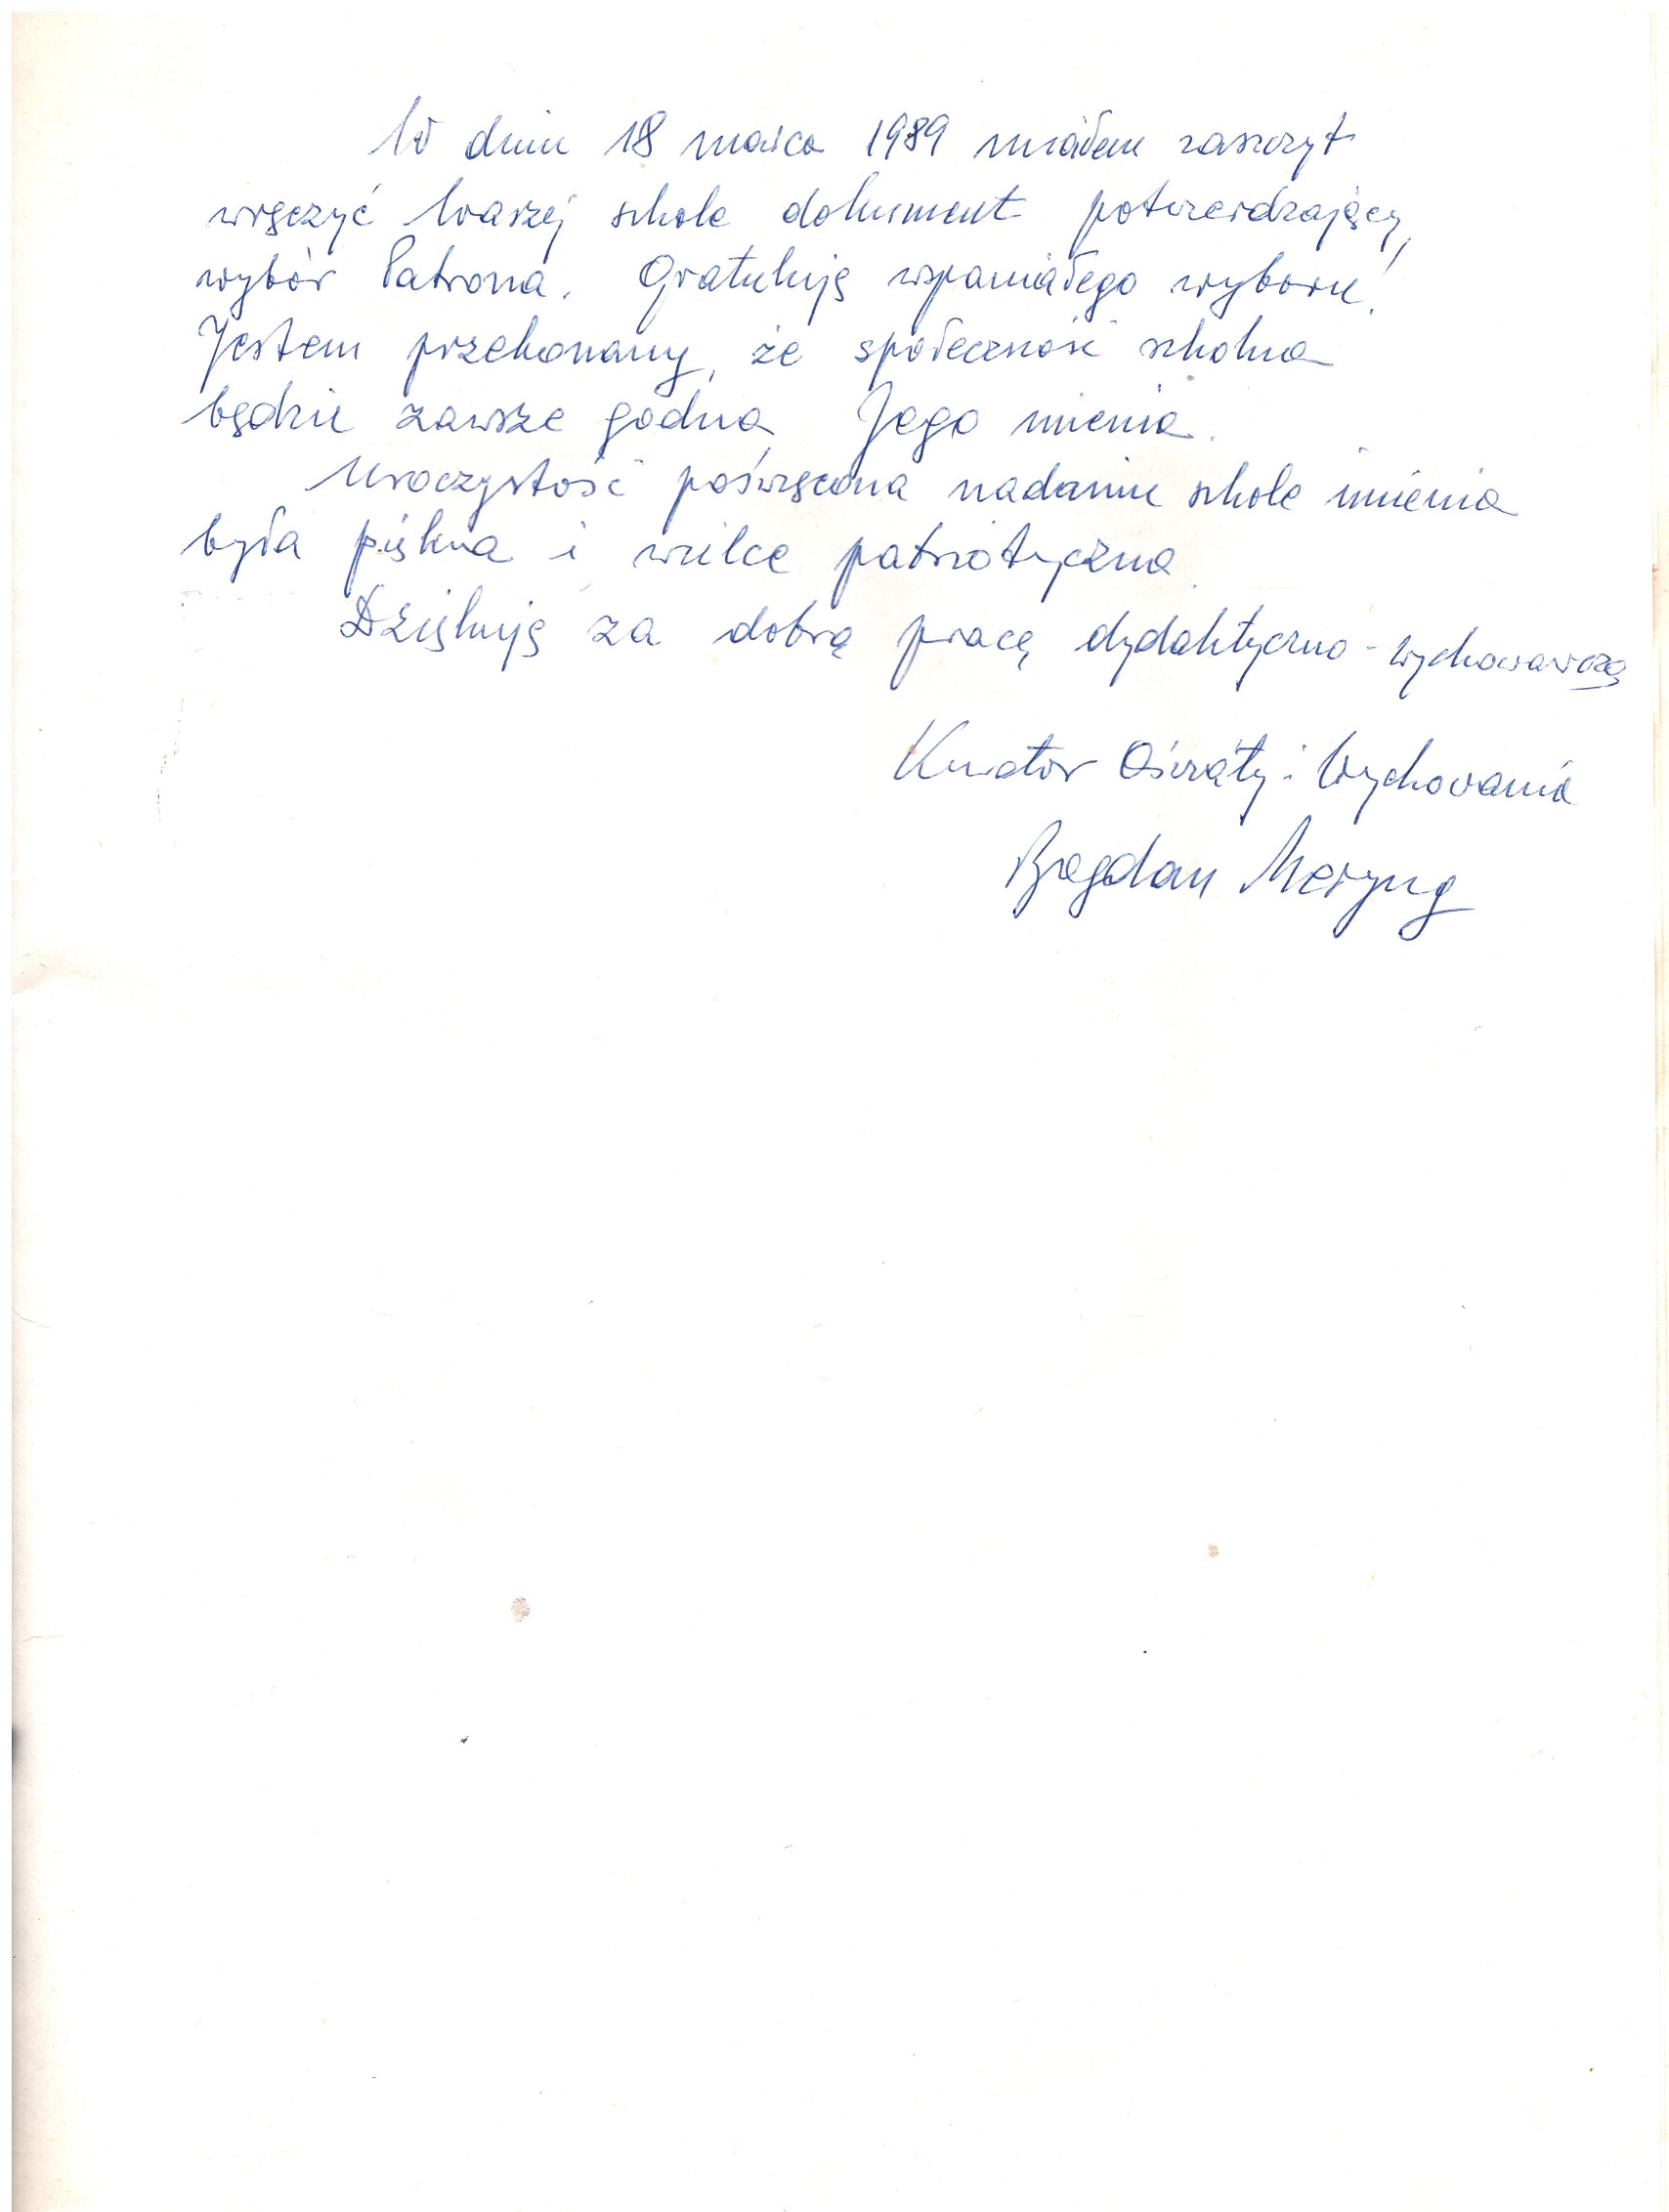 W dniu 18 marca 1989 miałem zaszczyt
wręczyć Waszej szkole dokument potwierdzający,
wybór Patrona. Gratuluję wspaniałego wyboru!
Jestem przekonany, że społeczność szkolna
będzie zawsze godna Jego imienia.
Uroczystość poświęcona nadaniu szkole imienia
była piękna i wielce patriotyczna.
Dziękuję za dobrą pracę dydaktyczno-wychowawczą
Kurator Oświaty i Wychowania
Bogdan Meryng